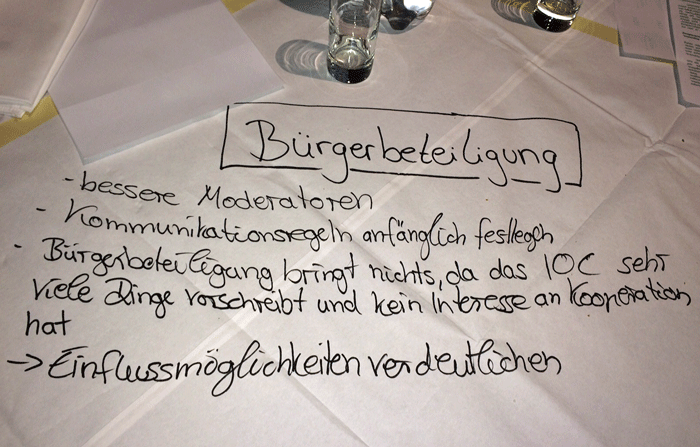 Bürgerbeteiligung
- bessere Moderatoren
- Kommunikationsregeln anfänglich festlegen
- Bürgerbeteiligung bringt nichts, da das IOC sehr
viele Dinge vorschreibt und kein Interesse an Kooperation
hat
-> Einflussmöglichkeiten verdeutlichen